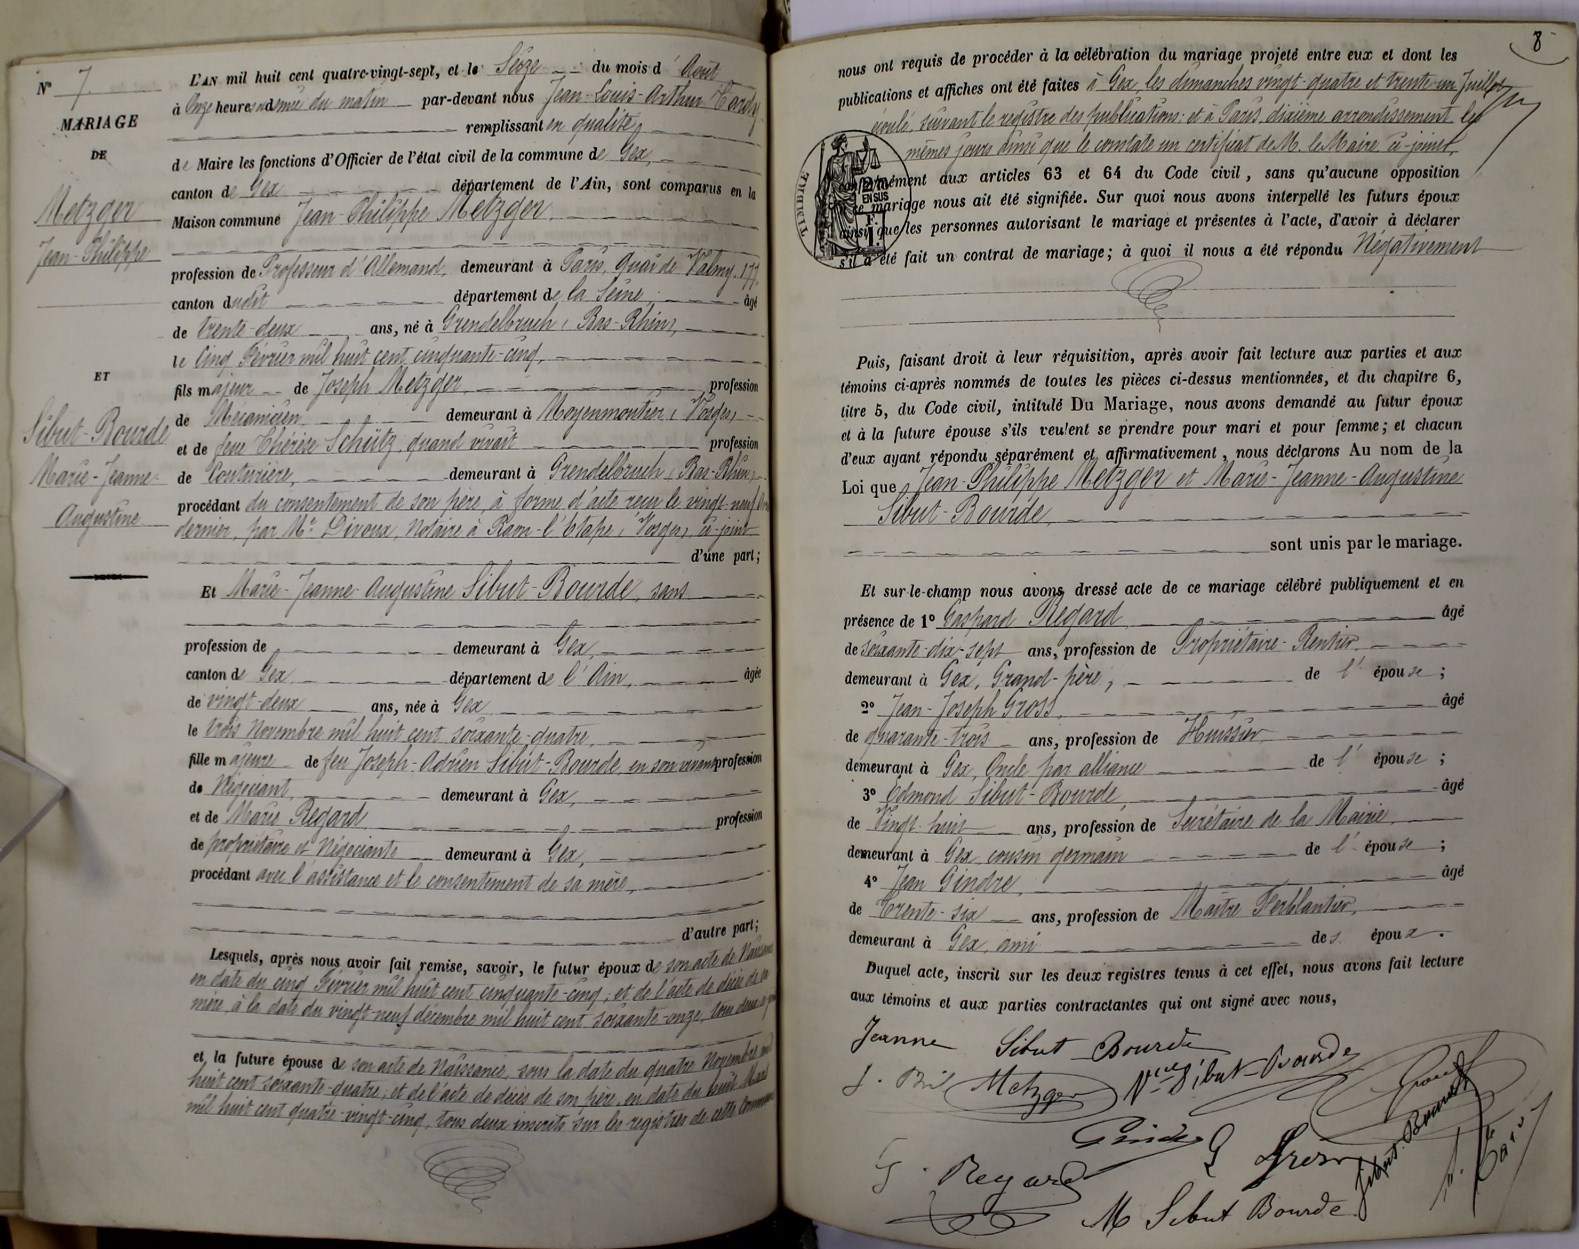 N° 7.
MARIAGE
DE
Metzger
Jean-Philippe
ET
Sibut-Bourde
Marie-Jeanne-
Augustine
L'AN mil huit cent quatre-vingt-sept, et le Seize du mois d'Août
à Onze heures et demie du matin par-devant nous Jean-Louis-Arthur Tardy
remplissant en qualité
de Maire les fonctions d'Officier de l'état civil de la commune de Gex,
canton de Gex département de l'Ain, sont comparus en la
Maison commune Jean-Philippe Metzger
profession de Professeur d'Allemand, demeurant à Paris, Quai de Valmy, 177,
canton dudit département de la Seine, âgé
de trente-deux ans, né à Grendelbruch (Bas-Rhin),
le Cinq Février mil huit cent cinquante-cinq,
fils majeur de Joseph Metzger, profession
de Mécanicien demeurant à Moyenmoutier (Vosges)
et de feue Thérèse Schütz, quand vivait profession
de Couturière, demeurant à Grendelbruch (Bas-Rhin),
procédant du consentement de son père, à forme d'acte reçu le vingt-neuf
dernier, par Me Divoux, Notaire à Raon-l'Etape (Vosges) ci-joint
d'une part;
Et Marie-Jeanne-Augustine Sibut-Bourde, sans
profession de demeurant à Gex,
canton de Gex, département de l'Ain, âgée
de vingt-deux ans, née à Gex
le trois Novembre mil huit cent soixante-quatre,
fille majeure de feu Joseph-Adrien Sibut-Bourde, en son vivant profession
de Négociant, demeurant à Gex,
et de Marie Regard profession
de propriétaire et Négociante demeurant à Gex,
procédant avec l'assistance et le consentement de sa mère,
d'autre part;
Lesquels, après nous avoir fait remise, savoir, le futur époux de son acte de Naissance
en date du cinq Février mil huit cent cinquante-cinq, et de l'acte de décès de sa
mère, à la date du vingt-neuf décembre mil huit cent soixante-onze, tous deux
et la future épouse de son acte de Naissance, sous la date du quatre Novembre mil
huit cent soixante-quatre, et de l'acte de décès de son père, en date du huit Mars
mil huit cent quatre-vingt-cinq, tous deux inscrits sur les registres de cette Commune
8
nous ont requis de procéder à la célébration du mariage projeté entre eux et dont les
publications et affiches ont été faites à Gex, les dimanches vingt-quatre et trente-un Juillet
écoulé, suivant le registre des publications; et à Paris, dixième arrondissement les
mêmes jours ainsi que le constate un certificat de M. le Maire ci-joint,
conformément aux articles 63 et 64 du Code civil, sans qu'aucune opposition
ce mariage nous ait été signifiée. Sur quoi nous avons interpellé les futurs époux
ainsi que les personnes autorisant le mariage et présentes à l'acte, d'avoir à déclarer
s'il a été fait un contrat de mariage; à quoi il nous a été répondu Négativement
TIMBRE
EN SUS
Puis, faisant droit à leur réquisition, après avoir fait lecture aux parties et aux
témoins ci-après nommés de toutes les pièces ci-dessus mentionnées, et du chapitre 6,
titre 5, du Code civil, intitulé Du Mariage, nous avons demandé au futur époux
et à la future épouse s'ils veulent se prendre pour mari et pour femme; et chacun
d'eux ayant répondu séparément et affirmativement, nous déclarons Au nom de la
Loi que Jean-Philippe Metzger et Marie-Jeanne-Augustine
Sibut-Bourde,
sont unis par le mariage.
Et sur-le-champ nous avons dressé acte de ce mariage célébré publiquement et en
présence de 1° Gaspard Regard âgé
de soixante-dix-sept ans, profession de Propriétaire-Rentier,
demeurant à Gex, Grand-père, de l'épouse;
2° Jean-Joseph Gross, âgé
de quarante-trois ans, profession de Huissier
demeurant à Gex, Oncle par alliance de l'épouse;
3° Edmond Sibut-Bourde, âgé
de Vingt-huit ans, profession de Secrétaire de la Mairie,
demeurant à Gex, cousin germain de l'épouse;
4° Jean Gindre, âgé
de Trente-six ans, profession de Maître Ferblantier,
demeurant à Gex, ami des époux.
Duquel acte, inscrit sur les deux registres tenus à cet effet, nous avons fait lecture
aux témoins et aux parties contractantes qui ont signé avec nous,
Jeanne Sibut-Bourde
Metzger Vve Sibut-Bourde
Gindre
G. Regard
M Sibut Bourde